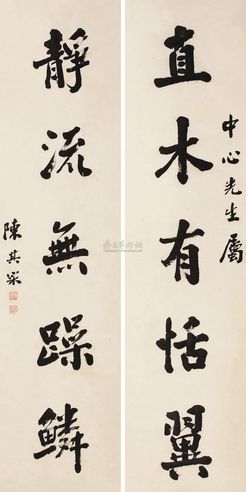 中心先生属
直木有恬翼
靜流無躁鱗
陳其采